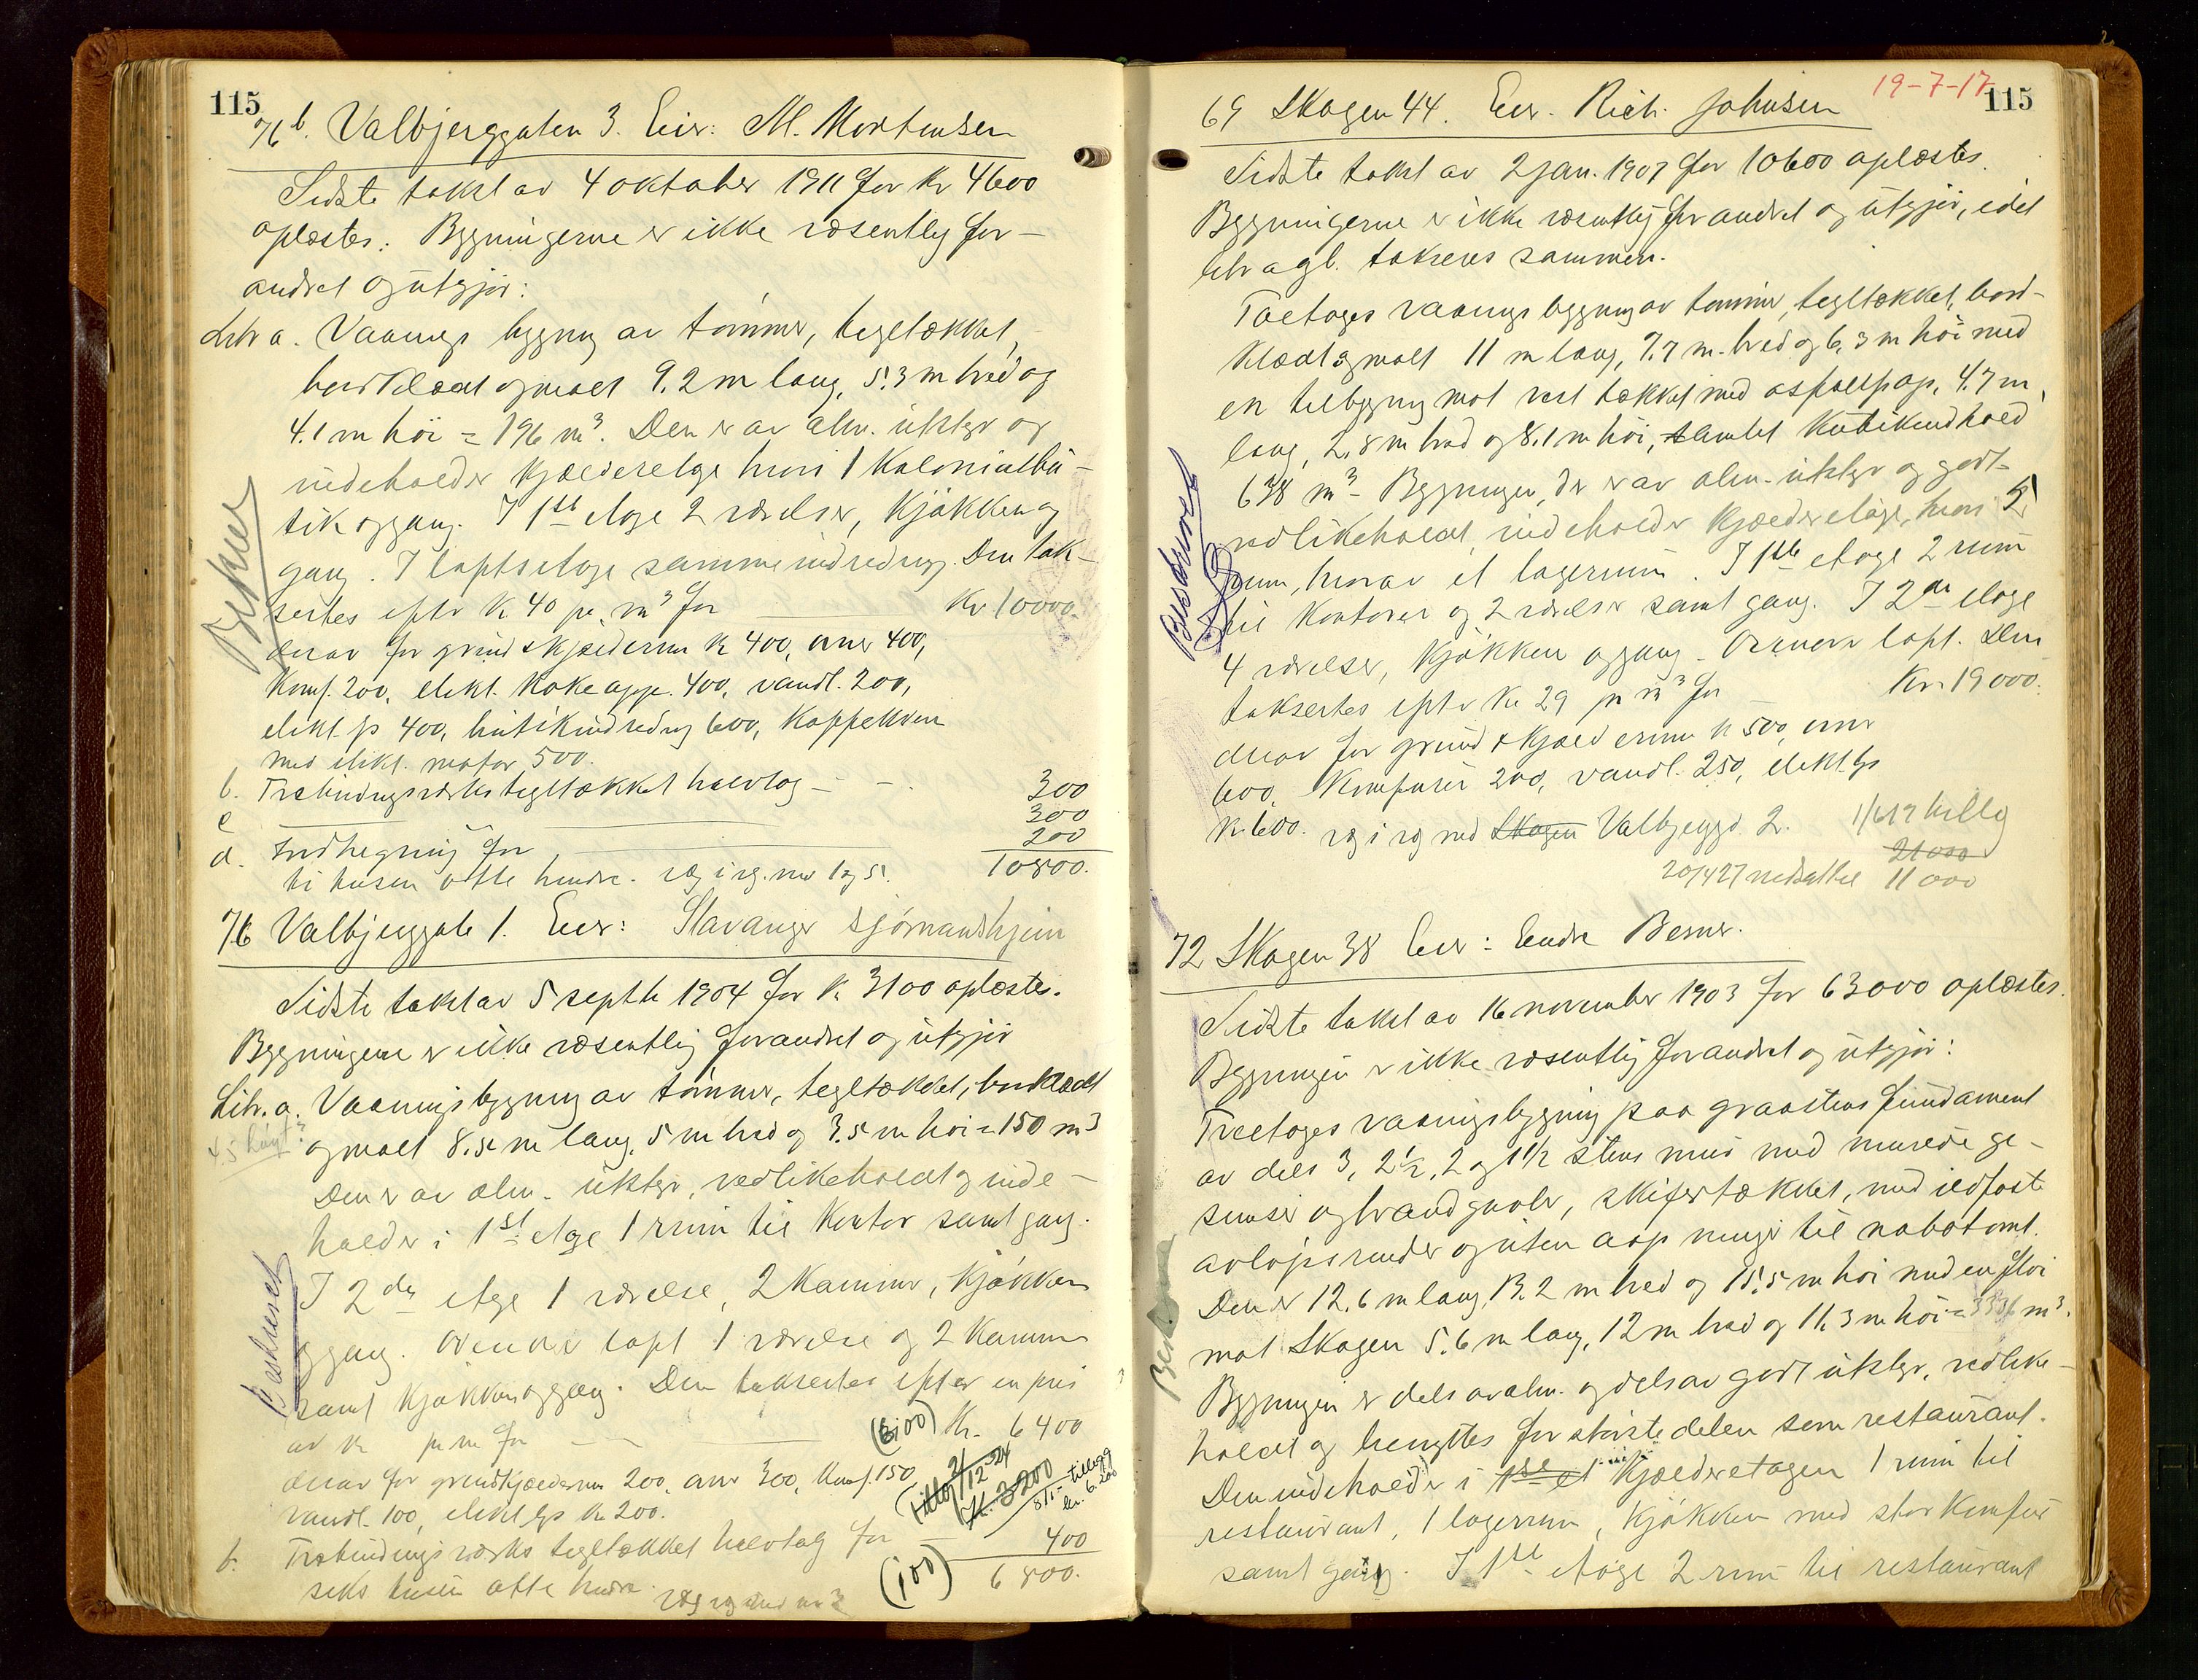 115
76b. Valbjerggaten 3. Eier: M. Mortensen
Sidste takst av 4 oktober 1911 for kr 4600
oplæstes. Bygningerne er ikke væsentlig for-
andret og utgjør:
Litr a. Vaaningsbygning av tømmer, tegltækket,
bordklædt og malt 9.2 m lang, 5.3 m bred og
4.1 m høi = 196 m³. Den er av alm. utstyr og
indeholder kjælderetage hvori 1 Kolonialbu-
tik og gang. I 1ste etage 2 værelser, kjøkken og
gang. I loftsetage samme indredning. Den tak-
sertes efter kr 40 pr. m³ for Kr 10000.
derav for grund & kjældermur kr 400, ovner 400,
komf. 200, elekt. kokeapp. 400, vandl. 200,
elekt. lys 400, butikindredning 600, Kaffekvern
med elekt. motor 500.
b. Træbindingsværks tegltækket halvtag - - 300
c 300
d. Indhegning for 200
ti tusen otte hundre. væg i væg med 1 og 5. 10800.
76 Valbjerggate 1. Eier: Stavanger sjømandshjem
Sidste takst av 5 septbr 1904 for kr 3100 oplæstes.
Bygningerne er ikke væsentlig forandret og utgjør
Litr. a. Vaaningsbygning av tømmer, tegltækket, bordklædt
og malt 8.5 m lang, 5 m bred og 3.5 m høi = 150 m³
Den er av alm. utstyr, vedlikeholdt og inde-
holder i 1st etage 1 rum til kontor samt gang.
I 2den etage 1 værelse, 2 kammer, kjøkken
og gang. Ovenover loft 1 værelse og 2 kammer
samt kjøkken og gang. Den taksertes efter en pris
av kr pr m for Kr. 6400
derav for grund kjældermur 200, ovner 300, komf. 150
vandl. 100, elekt lys kr 200.
b. Træbindingsværks tegltækket halvtag for 400
seks tusen otte hundre. 6800.
19-7-17
115
69 Skagen 44. Eier. Rich. Johnsen
Sidste takst av 2 jan. 1907 for 10600 oplæstes.
Bygningerne er ikke væsentlig forandret og utgjør, idet
litr a og b. takseres sammen.
Toetages vaaningsbygning av tømmer, tegltækket, bord-
klædt og malt 11 m lang, 7.7 m. bred og 6.3 m høi med
en tilbygning mot vest tækket med asfaltpap, 4.7 m
lang, 2.8 m bred og 8.1 m høi, samlet kubikindhold
638 m³. Bygningen, der er av alm. utstyr og godt
vedlikeholdt, indeholder kjælderetage, hvori 5
rum, hvorav et lagerrum. I 1ste etage 2 rum
til kontorer og 2 værelser samt gang. I 2den etage
4 værelser, kjøkken og gang. Ovenover loft. Den
taksertes efter kr 29 pr m³ for Kr 19000.
derav for grund & kjældermur kr 500, ovner
600, komfurer 200, vandl. 250, elekt. lys
kr 600. væg i væg med Skagen Valbjergg. 2. 1/6 17 tillæg
21000
20/4 27 nedsat til 11000
72 Skagen 38 Eier: Endre Berner.
Sidste takst av 16 november 1903 for 63000 oplæstes.
Bygningen er ikke væsentlig forandret og utgjør:
Treetages vaaningsbygning paa graastens fundament
av dels 3, 2½, 2 og 1½ stens mur med murede ge-
simser og brandgavler, skifertækket, med ildfaste
avløpsrender og uten aapninger til nabotomt.
Den er 12.6 m lang, 13.2 m bred og 15.5 m høi med en fløi
mot Skagen 5.6 m lang, 12 m bred og 11.3 m høi = 3336 m³.
Bygningen er dels av alm. og dels av godt utstyr, vedlike-
holdt og benyttes for største delen som restaurant.
Den indeholder i 1ste et kjælderetagen 1 rum til
restaurant, 1 lagerrum, kjøkken med stor komfur
samt gang. I 1ste etage 2 rum til restaurant